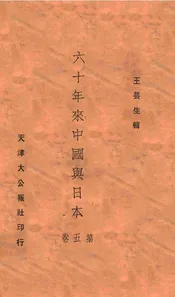 王芸生輯
六十年來中國與日本
第五卷
天津大公報社印行